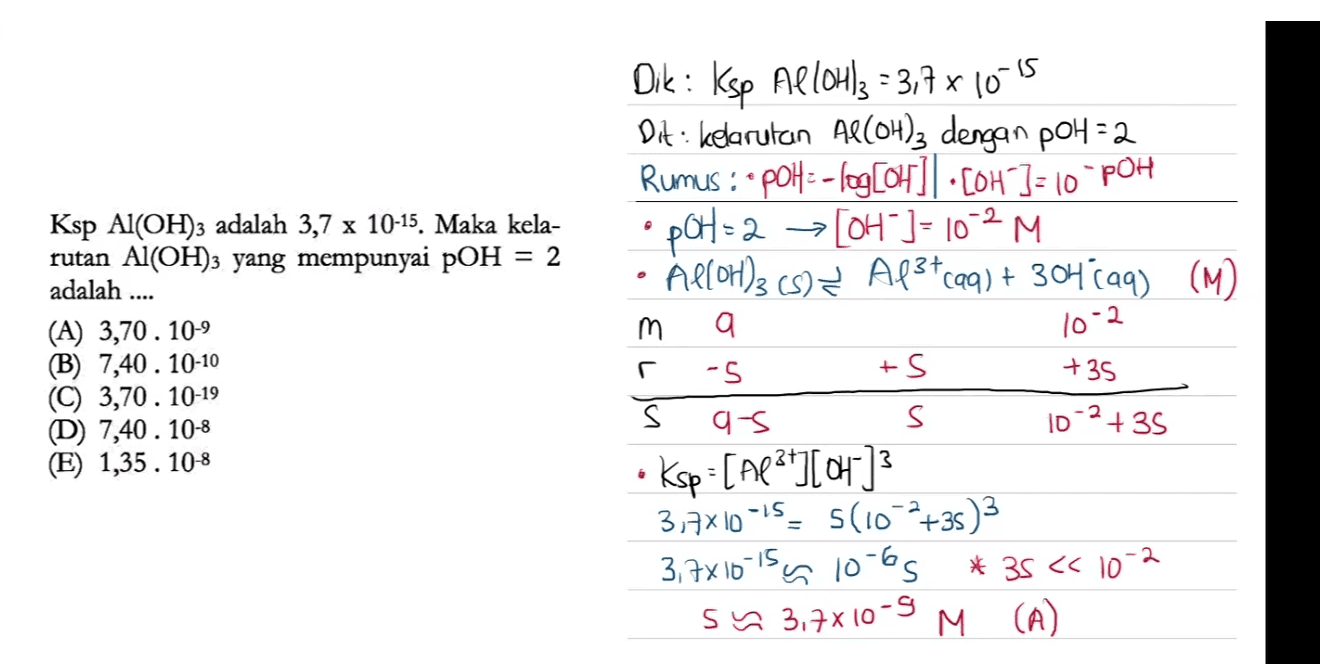 Ksp Al(OH)₃ adalah 3,7 x 10⁻¹⁵. Maka kela-
rutan Al(OH)₃ yang mempunyai pOH = 2
adalah ....
(A) 3,70 . 10⁻⁹
(B) 7,40 . 10⁻¹⁰
(C) 3,70 . 10⁻¹⁹
(D) 7,40 . 10⁻⁸
(E) 1,35 . 10⁻⁸
Dik : Ksp Al(OH)₃ = 3,7 × 10⁻¹⁵
Dit : kelarutan Al(OH)₃ dengan pOH = 2
Rumus : • pOH = -log[OH⁻] | • [OH⁻] = 10⁻ᵖᴼᴴ
• pOH = 2 → [OH⁻] = 10⁻² M
• Al(OH)₃ (s) ⇌ Al³⁺(aq) + 3OH⁻(aq) (M)
m a 10⁻²
r -s +s +3s
s a-s s 10⁻² + 3s
• Ksp = [Al³⁺][OH⁻]³
3,7×10⁻¹⁵ = s(10⁻²+3s)³
3,7×10⁻¹⁵ ≈ 10⁻⁶s * 3s << 10⁻²
s ≈ 3,7×10⁻⁹ M (A)